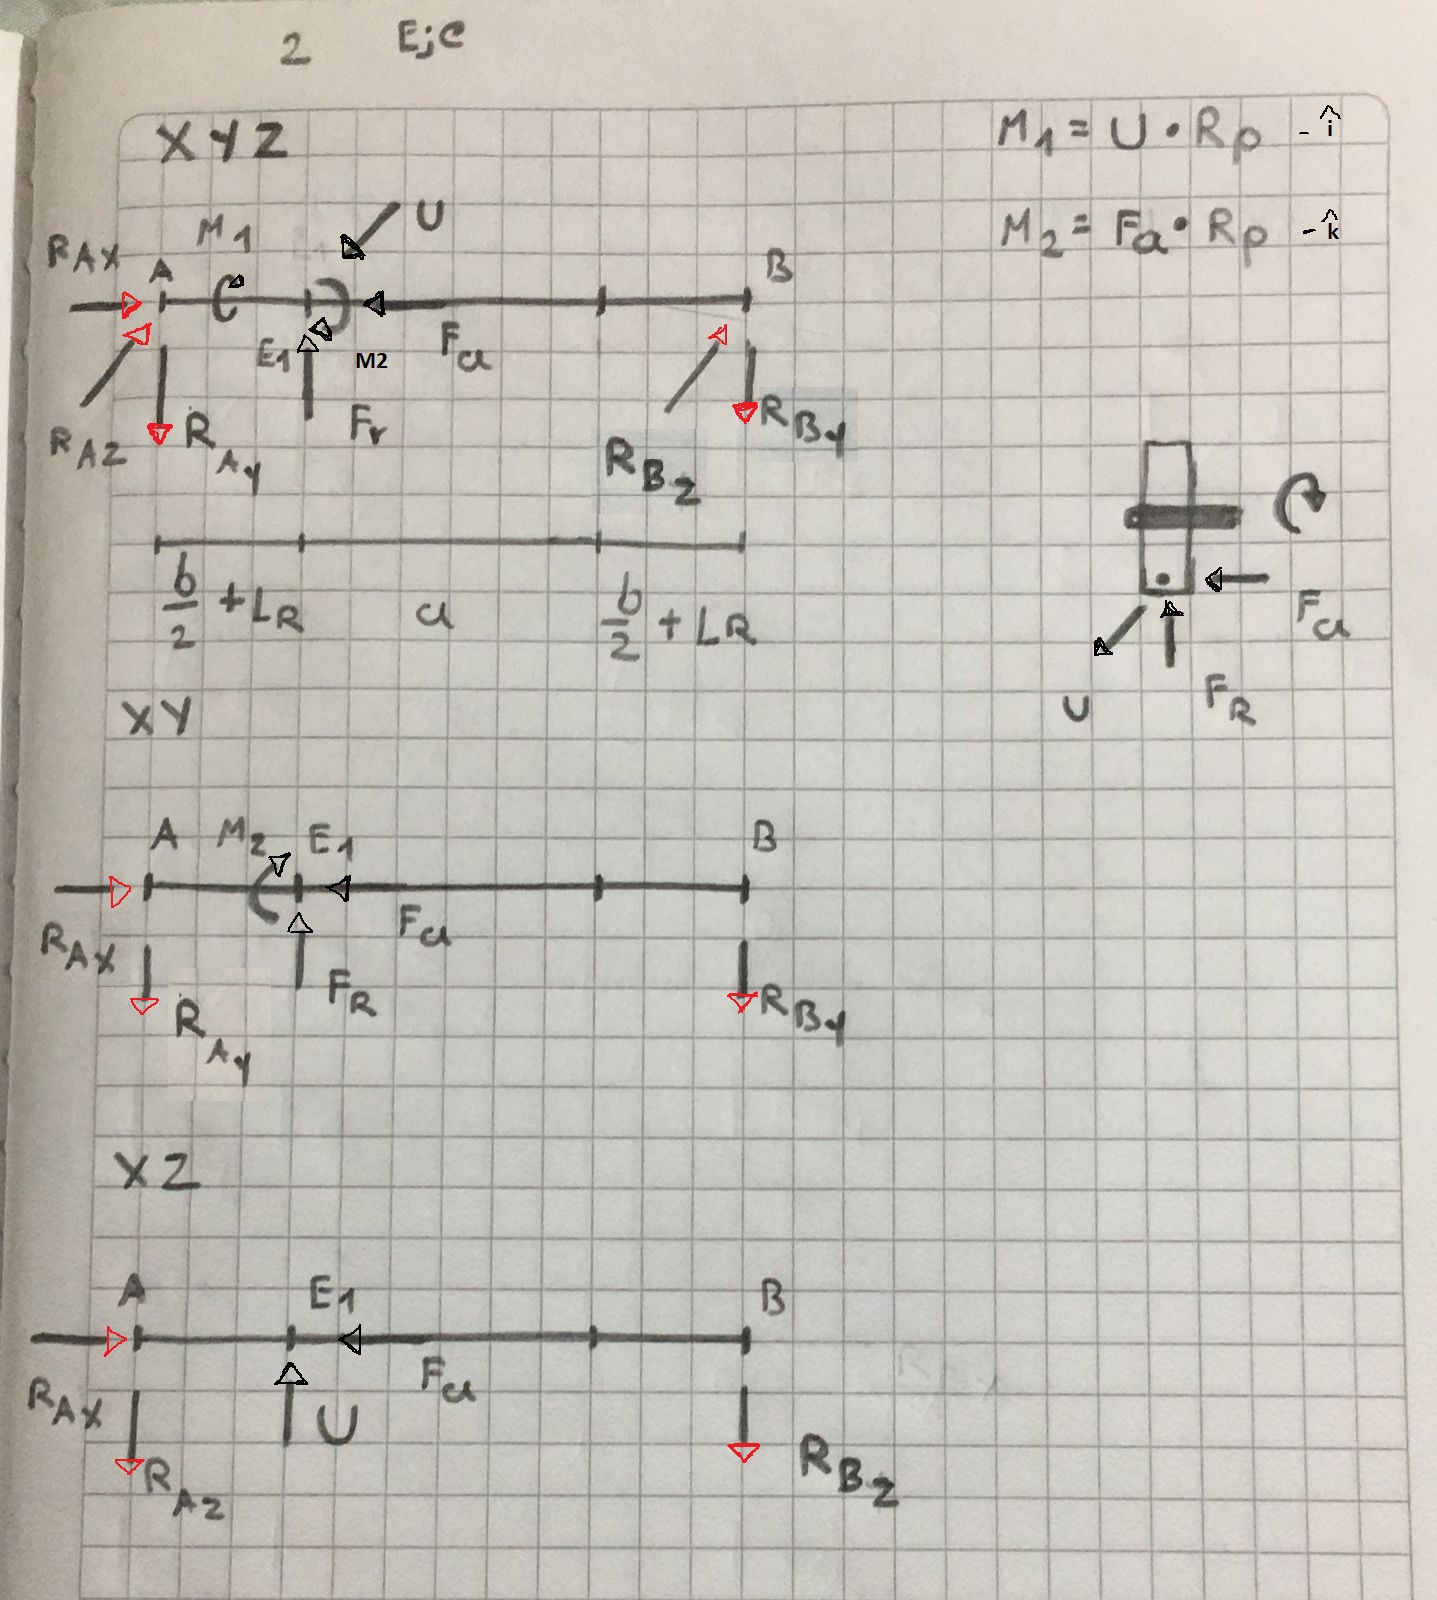 2 Eje
XYZ
M1 = U · Rp - î
M2 = Fa · Rp - k̂
U
M1
RAX
A
B
E1
M2
Fa
RAZ
RAy
Fr
RBZ
RBy
b/2 + LR
a
b/2 + LR
Fa
U
FR
XY
A
M2
E1
B
RAX
Fa
RAy
FR
RBy
XZ
A
E1
B
RAX
Fa
U
RAZ
RBZ